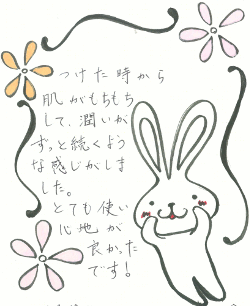 つけた時から
肌がもちもち
して、潤いが
ずっと続くよう
な感じがしま
した。
とても使い
心地が
良かった
です!